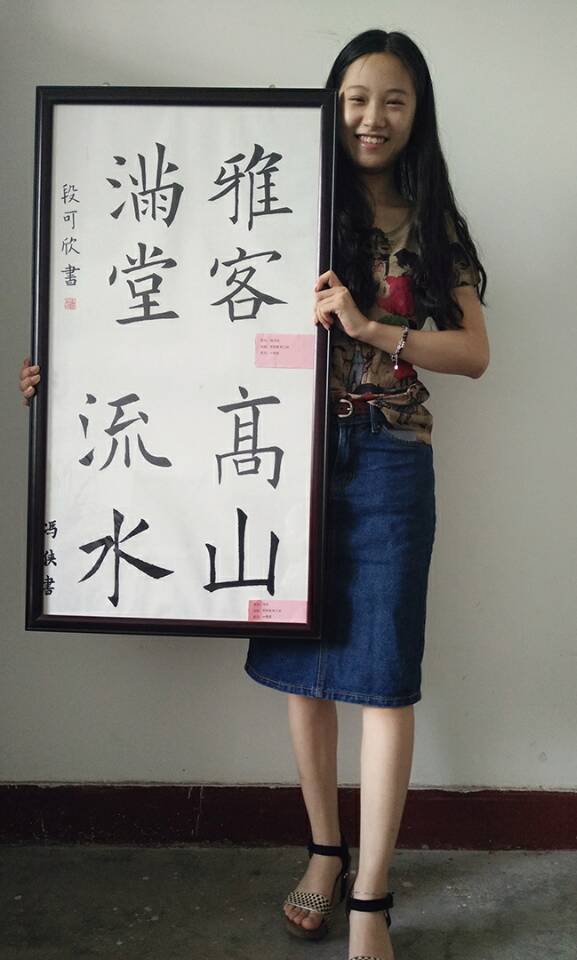 雅客
滿堂
段可欣書
高山
流水
馮俠書